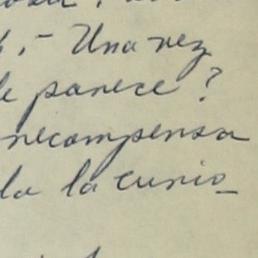 - Una vez
le parece?
recompensa
la la curio-